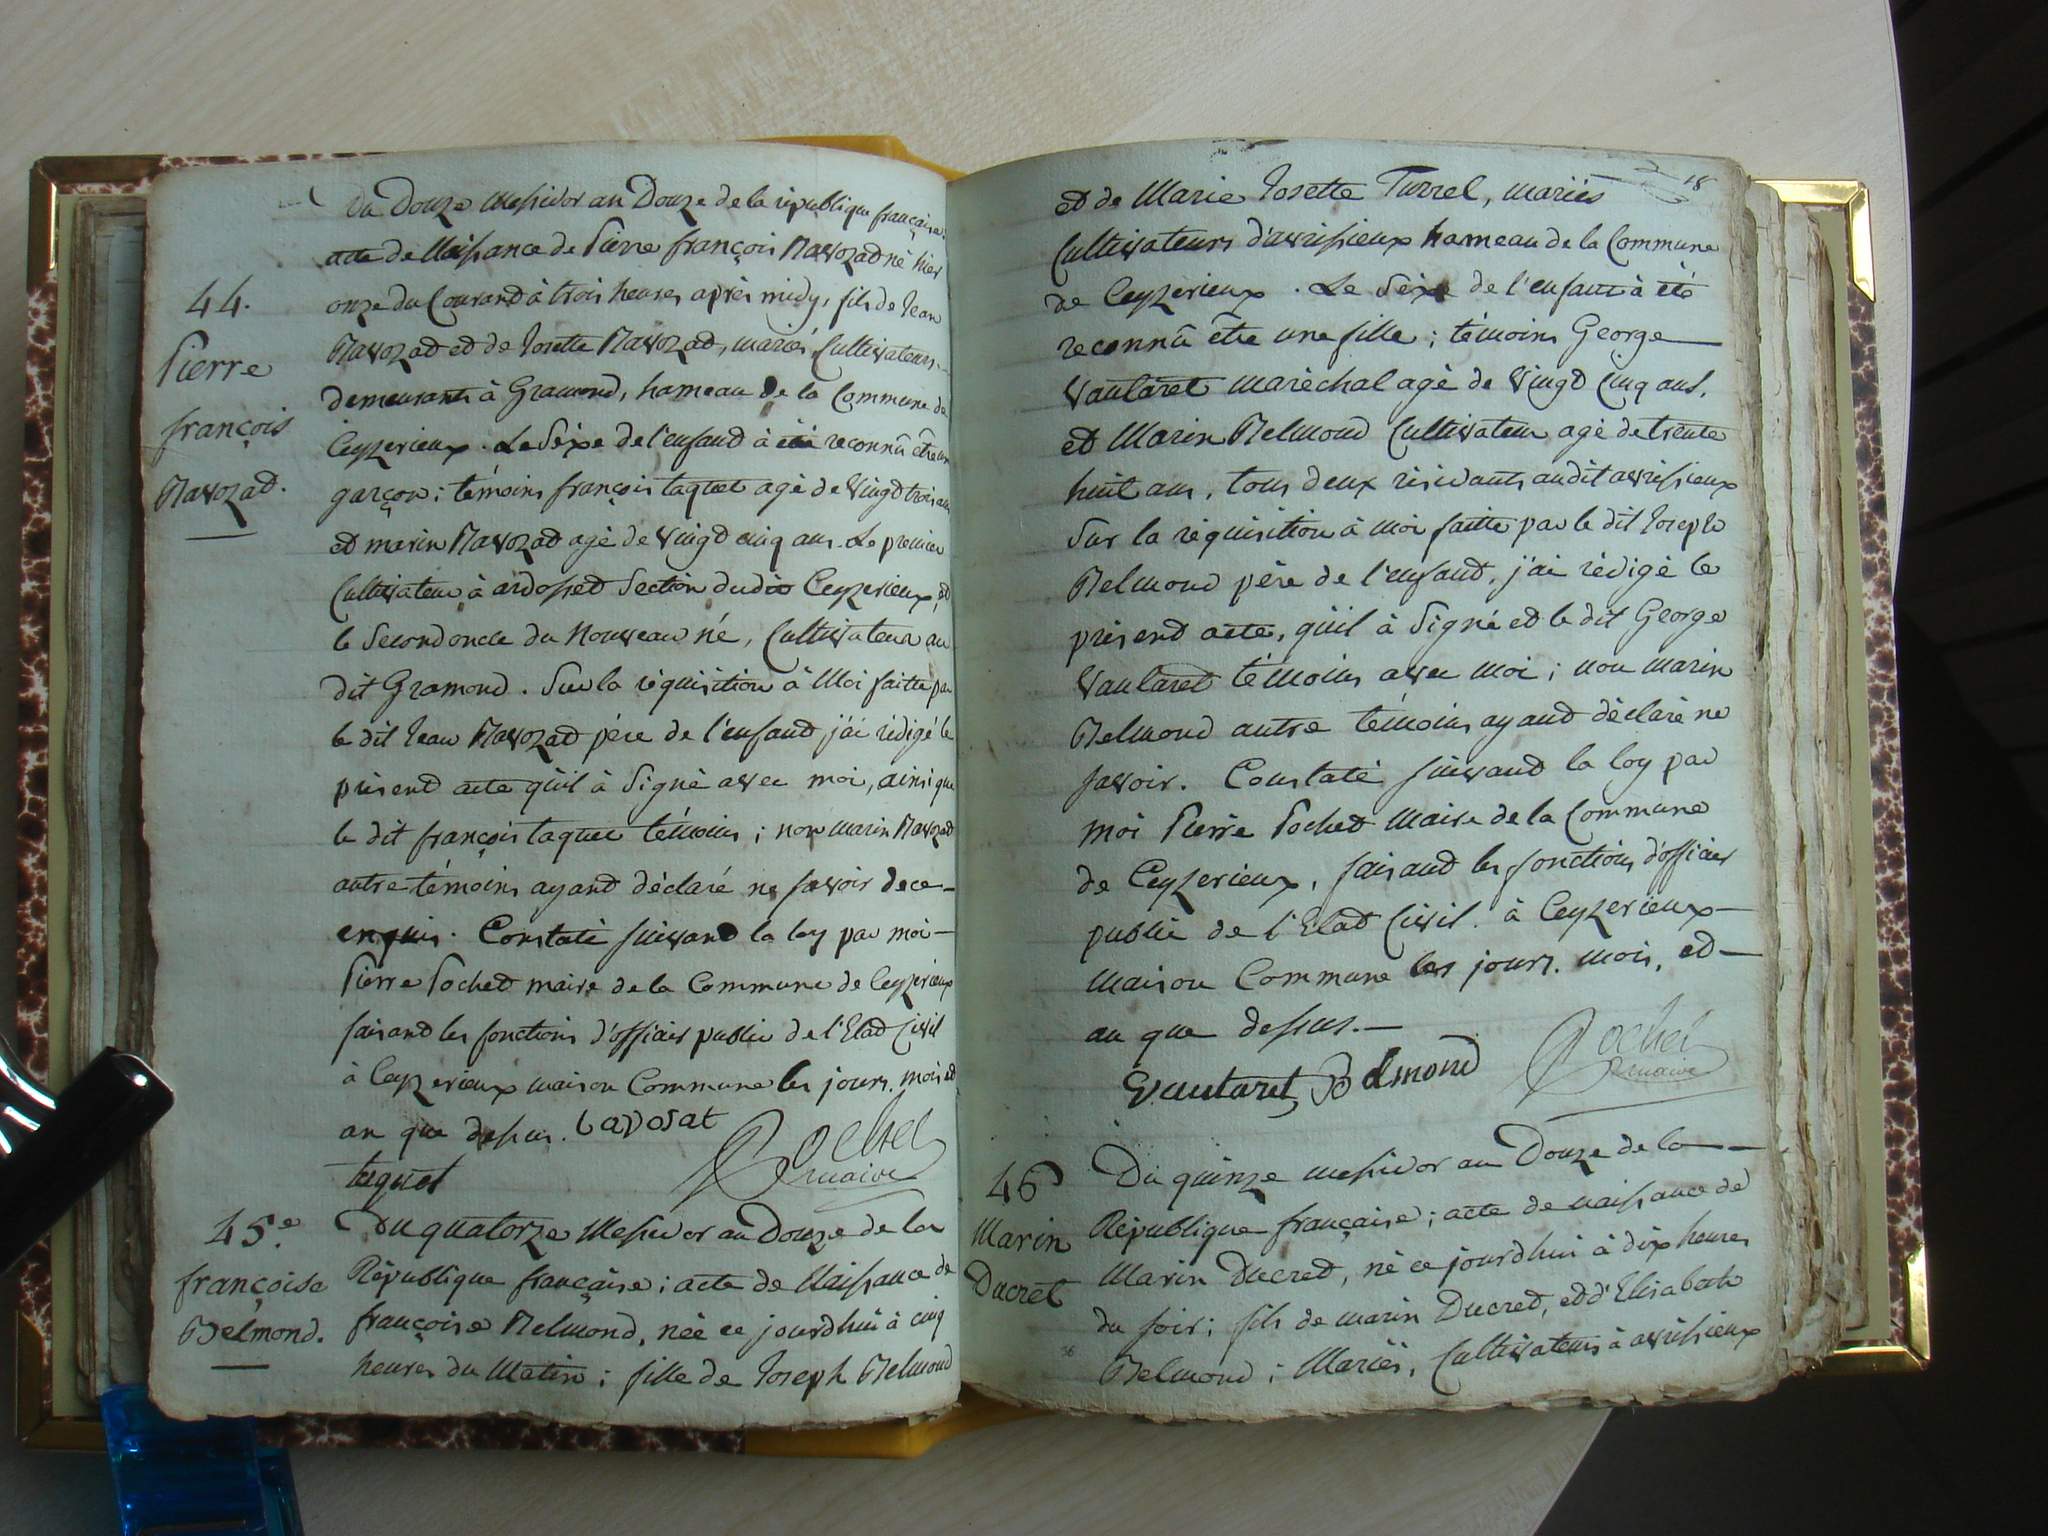 Du Douze Messidor an Douze de la république française.
acte de Naissance de Pierre françois Navozad né hier
onze du Courand à trois heures après midy, fils de Jean
Navozad et de Josette Navozad, mariés, Cultivateurs
demeurants à Gramond, hameau de la Commune de
Ceyzerieux. Le Sèxe de l'enfand à été reconnû être un
garçon; témoins françois taquet agé de Vingt trois ans
et marin Navozad agé de Vingt cinq ans. Le premier
Cultivateur à ardosset Section dudit Ceyzerieux, et
le Second oncle du Nouveau né, Cultivateur au
dit Gramond. Sur la réquisition à Moi faitte par
le dit Jean Navozad père de l'enfand j'ai rédigé le
présend acte qu'il à Signé avec moi, ainsi que
le dit françois taquet témoins; non marin Navozad
autre témoins ayand déclaré ne savoir de ce
enquis. Constaté suivand la loy par moi
Pierre Pochet maire de la Commune de Ceyzerieux
faisand les fonctions d'officier public de l'Etad Civil
à Ceyzerieux maison Commune les jours, mois et
an que dessus. Lavosat
taquet
Pochet maire
44.
Pierre
françois
Navozad.
45.e
françoise
Belmond.
Du quatorze Messidor an Douze de la
République française; acte de Naissance de
françoise Belmond, née ce jourdhui à cinq
heures du Matin; fille de Joseph Belmond
18
et de Marie Josette Turrel, mariés
Cultivateurs d'avrissieux hameau de la Commune
de Ceyzerieux. Le Sèxe de l'enfant à été
reconnû être une fille; témoins George
Vautaret maréchal agé de Vingt Cinq ans,
et Marin Belmond Cultivateur agé de trente
huit ans, tous deux résidants audit avrissieux
Sur la réquisition à moi faitte par le dit Joseph
Belmond père de l'enfand, j'ai rédigé le
présend acte, qu'il à Signé et le dit George
Vautaret témoins avec moi; non marin
Belmond autre témoins ayand déclaré ne
savoir. Constaté suivand la loy par
moi Pierre Pochet Maire de la Commune
de Ceyzerieux, faisand les fonctions d'officier
public de l'Etad Civil. à Ceyzerieux
Maison Commune les jours, mois, et
an que dessus.
Gvautaret, Belmond Pochet maire
46
Marin
Ducret
Du quinze messidor an Douze de la
République française; acte de naissance de
Marin Ducred, né ce jourdhui à dix heures
du soir; fils de marin Ducred, et d'Elisabeth
Belmond; Mariés, Cultivateurs à avrissieux
36